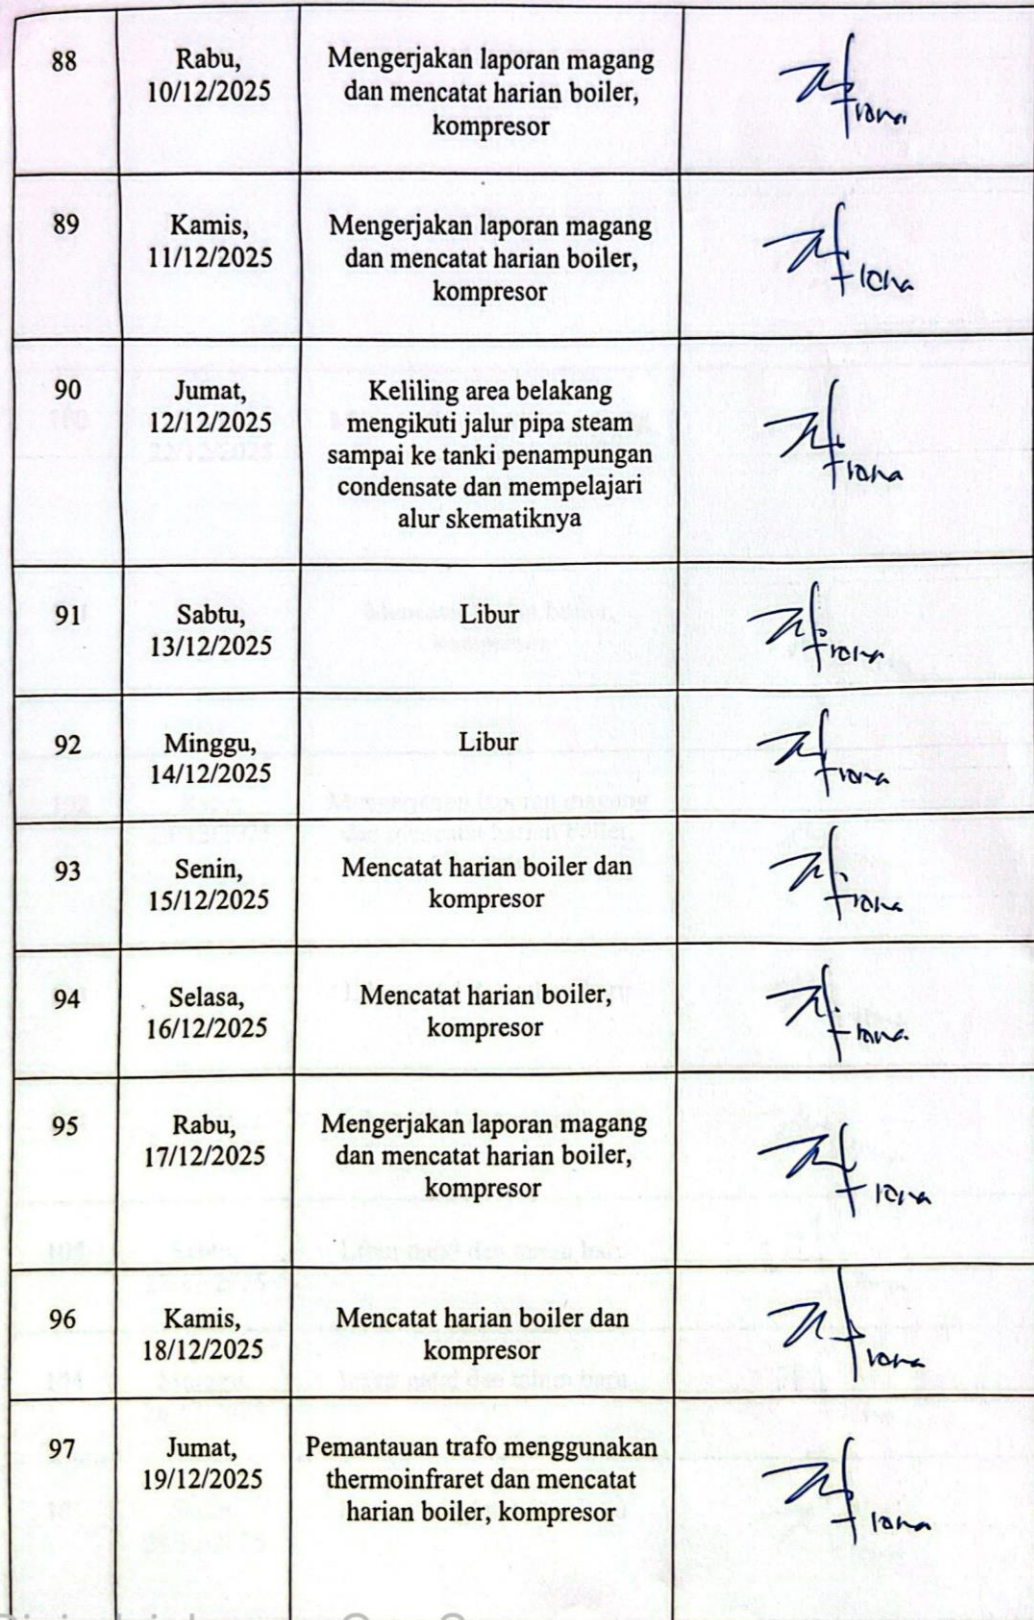 88
Rabu,
10/12/2025
Mengerjakan laporan magang
dan mencatat harian boiler,
kompresor
89
Kamis,
11/12/2025
Mengerjakan laporan magang
dan mencatat harian boiler,
kompresor
90
Jumat,
12/12/2025
Keliling area belakang
mengikuti jalur pipa steam
sampai ke tanki penampungan
condensate dan mempelajari
alur skematiknya
91
Sabtu,
13/12/2025
Libur
92
Minggu,
14/12/2025
Libur
93
Senin,
15/12/2025
Mencatat harian boiler dan
kompresor
94
Selasa,
16/12/2025
Mencatat harian boiler,
kompresor
95
Rabu,
17/12/2025
Mengerjakan laporan magang
dan mencatat harian boiler,
kompresor
96
Kamis,
18/12/2025
Mencatat harian boiler dan
kompresor
97
Jumat,
19/12/2025
Pemantauan trafo menggunakan
thermoinfraret dan mencatat
harian boiler, kompresor